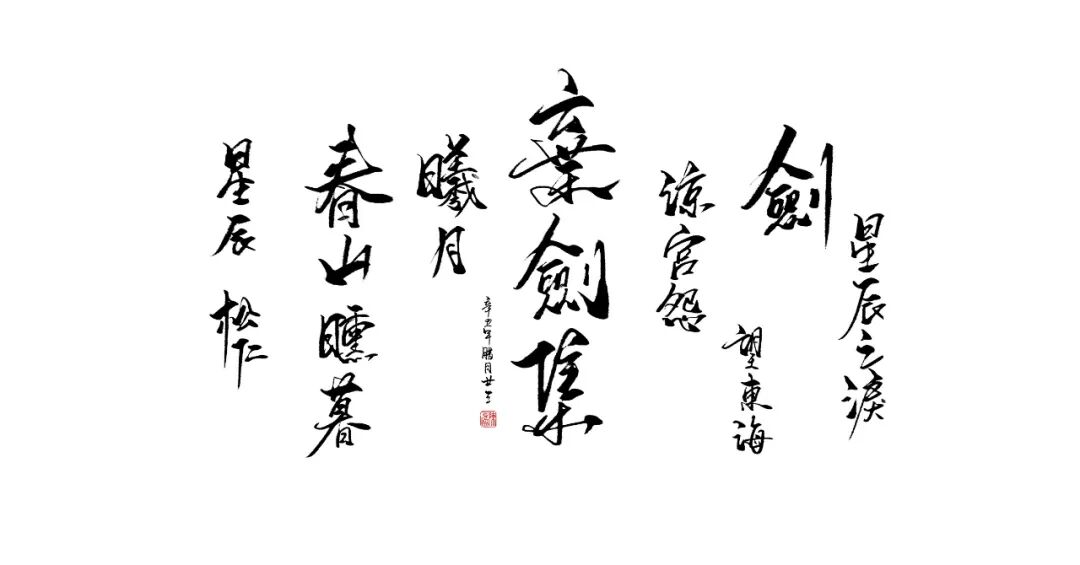 星辰之淚
劍
望東海
諒宮怨
棄劍集
辛丑年臘月廿三
曦月
春山曛暮
星辰
松下